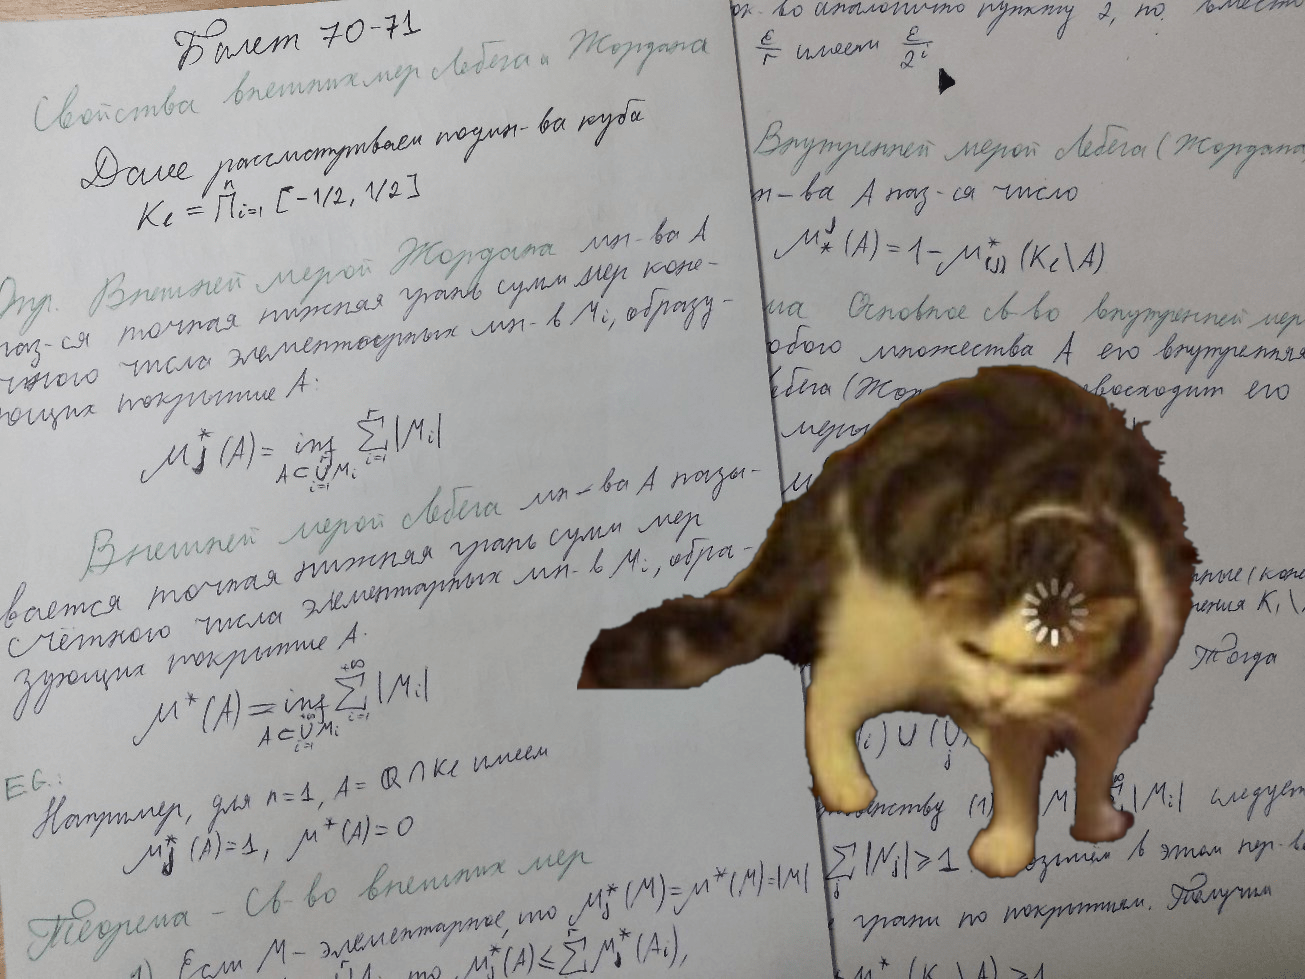 Билет 70-71
Свойства внешних мер Лебега и Жордана
Далее рассматриваем подмн-ва куба
K₁ = ∏ⁿᵢ₌₁ [-1/2, 1/2]
Опр. Внешней мерой Жордана мн-ва A
наз-ся точная нижняя грань сумм мер коне-
чного числа элементарных мн-в Mᵢ, образу-
ющих покрытие A:
μ*_J (A) = inf_{A⊂⋃ʳᵢ₌₁ Mᵢ} ∑ʳᵢ₌₁ |Mᵢ|
Внешней мерой Лебега мн-ва A назы-
вается точная нижняя грань сумм мер
счётного числа элементарных мн-в Mᵢ, обра-
зующих покрытие A:
μ*(A) = inf_{A⊂⋃^{+∞}ᵢ₌₁ Mᵢ} ∑^{+∞}ᵢ₌₁ |Mᵢ|
E.G.:
Например, для n=1, A = ℚ∩K₁ имеем
μ*_J (A)=1, μ*(A)=0
Теорема - Св-во внешних мер
1) Если M - элементарное, то μ*_J(M)=μ*(M)=|M|
то μ*_J(A)≤∑ʳ μ*_J(Aᵢ),
док-во аналогично пункту 2, но вместо
ε/r имеем ε/2ⁱ
Внутренней мерой Лебега (Жордана
мн-ва A наз-ся число
μ^J_*(A) = 1-μ*_(J) (K₁\A)
ма Основное св-во внутренней мер
юбого множества A его внутренняя
ебега (Жор восходит его
меры
ные (коне
нения K₁\
Тогда
ᵢ) ∪ (⋃ⱼ
венству (1) |Mᵢ| следует
∑ⱼ|Nⱼ|≥1. в этом нер-в
грани по покрытиям. Получим
μ*(K₁\A)≥1